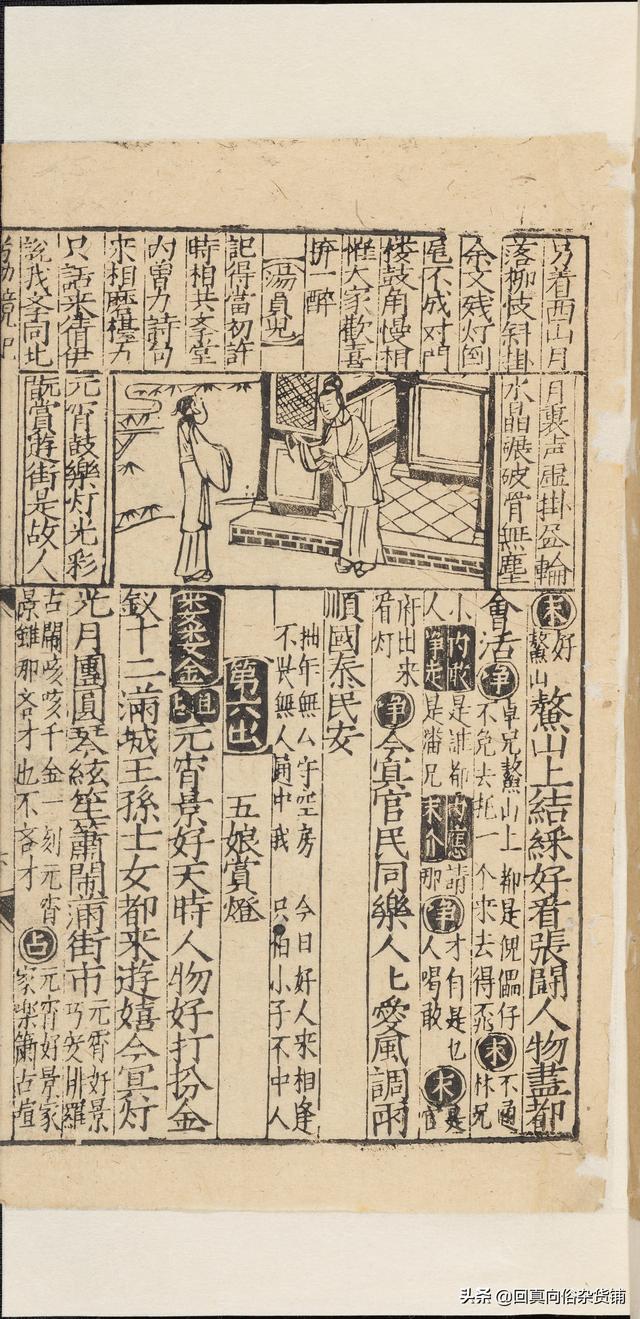 着西山月
落柳枝斜掛
余文残灯倒
尾不成对門
楼鼓角慢相
惟大家歡喜
拚一醉
湯員兒
記得當初許
時相共堂
内曾力詩句
來相磨力
只話來值伊
說我同比
月裏声虛掛輪
水晶碾破骨無塵
元宵鼓樂灯光彩
翫賞遊街是故人
末 好鰲山鰲山上結綵好看張鬧人物盡都
會活 净 卓兄鰲山上都是傀儡仔不免去抵一个來去得丕 末 不通林兄
小人 净走是誰都是潘兄 内應請末介那 净 才自是乜人喝敢 末 是官
府出來看灯 净 今宵官民同樂人匕愛風調雨
順國泰民安
抽年無厶守空房 今日好人來相逢
不世無人通中我 只怕小子不中人
第六出 五娘賞燈
金 旦占 元宵景好天時人物好打扮金
釵十二滿城王孫士女都来遊嬉今宵灯
光月團圓琴絃笙簫鬧滿街市元宵好景巧安排羅
占鬧咳咳千金一刻元宵景雖那吝才也不吝才 占 元宵好景家家樂簫占喧
头条 @回真向俗杂货铺